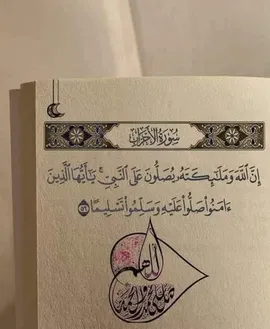 سُورَةُ الأَحْزَابِ
إِنَّ ٱللَّهَ وَمَلَٰٓئِكَتَهُۥ يُصَلُّونَ عَلَى ٱلنَّبِيِّۚ يَٰٓأَيُّهَا ٱلَّذِينَ
ءَامَنُواْ صَلُّواْ عَلَيْهِ وَسَلِّمُواْ تَسْلِيمًا ٥٦
اللهم
صل على محمد وآل محمد